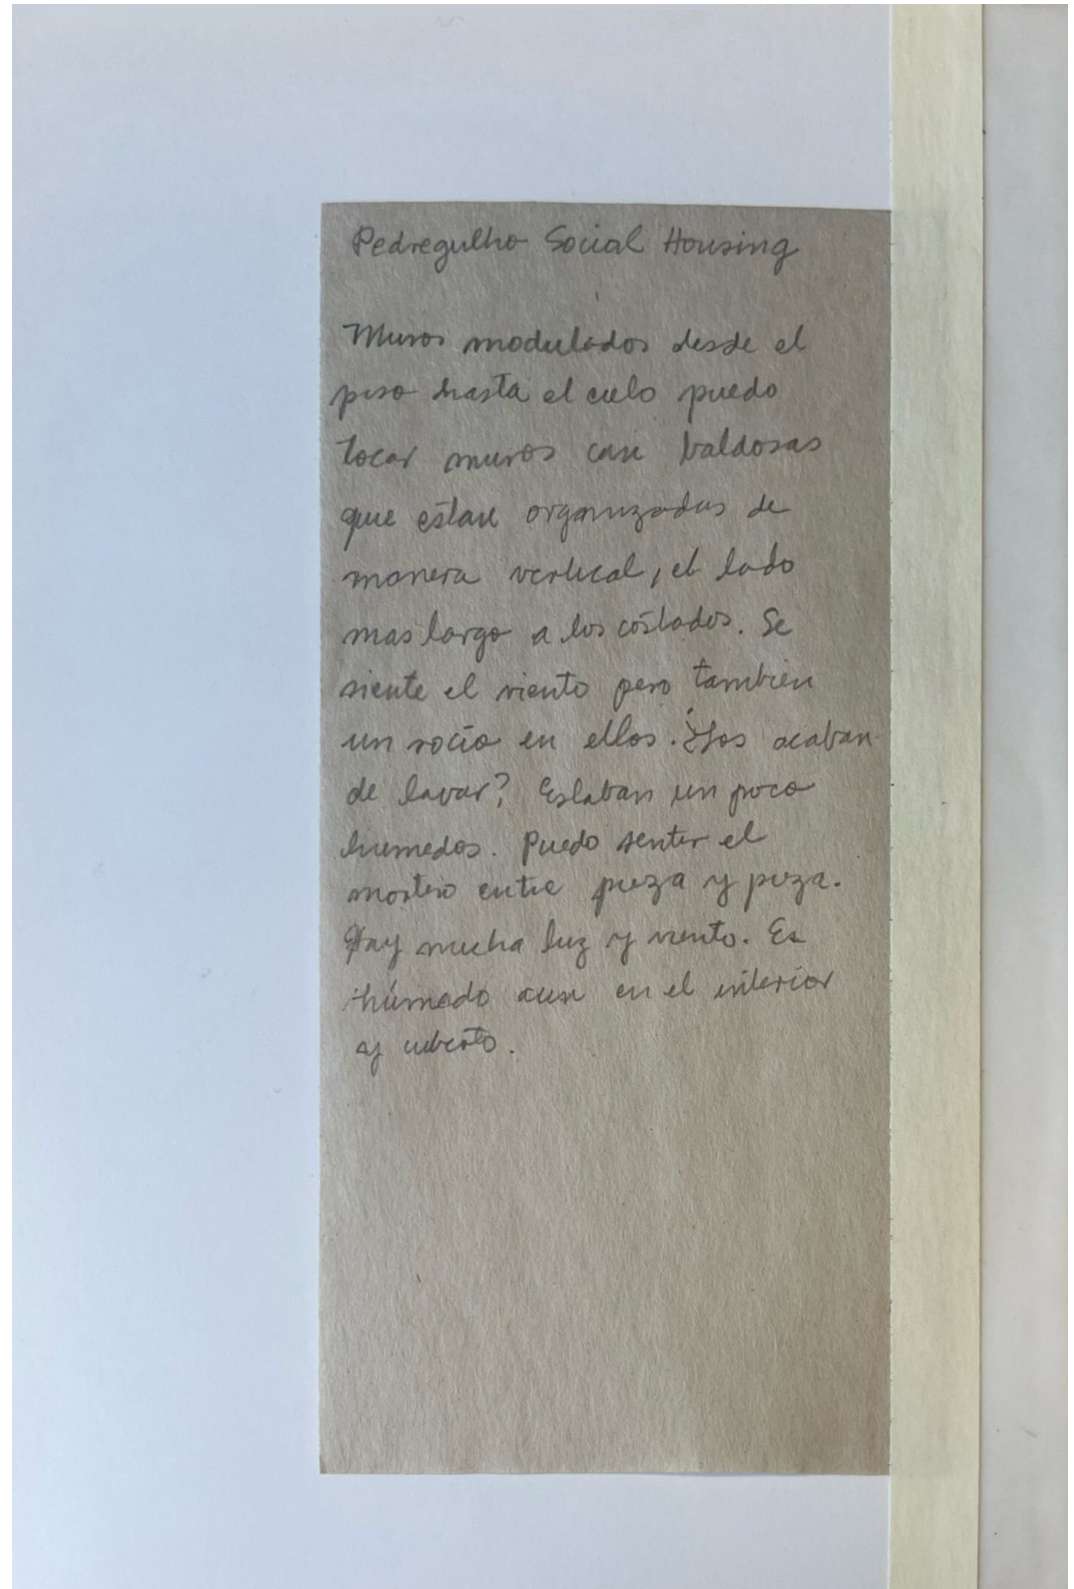 Pedregulho Social Housing
Muros modulados desde el
piso hasta el cielo puedo
tocar muros con baldosas
que estan organizadas de
manera vertical, el lado
mas largo a los costados. Se
siente el viento pero también
un rocío en ellos. ¿Los acaban
de lavar? Estaban un poco
humedos. Puedo sentir el
mortero entre pieza y pieza.
Hay mucha luz y viento. Es
húmedo aun en el interior
y cubierto.